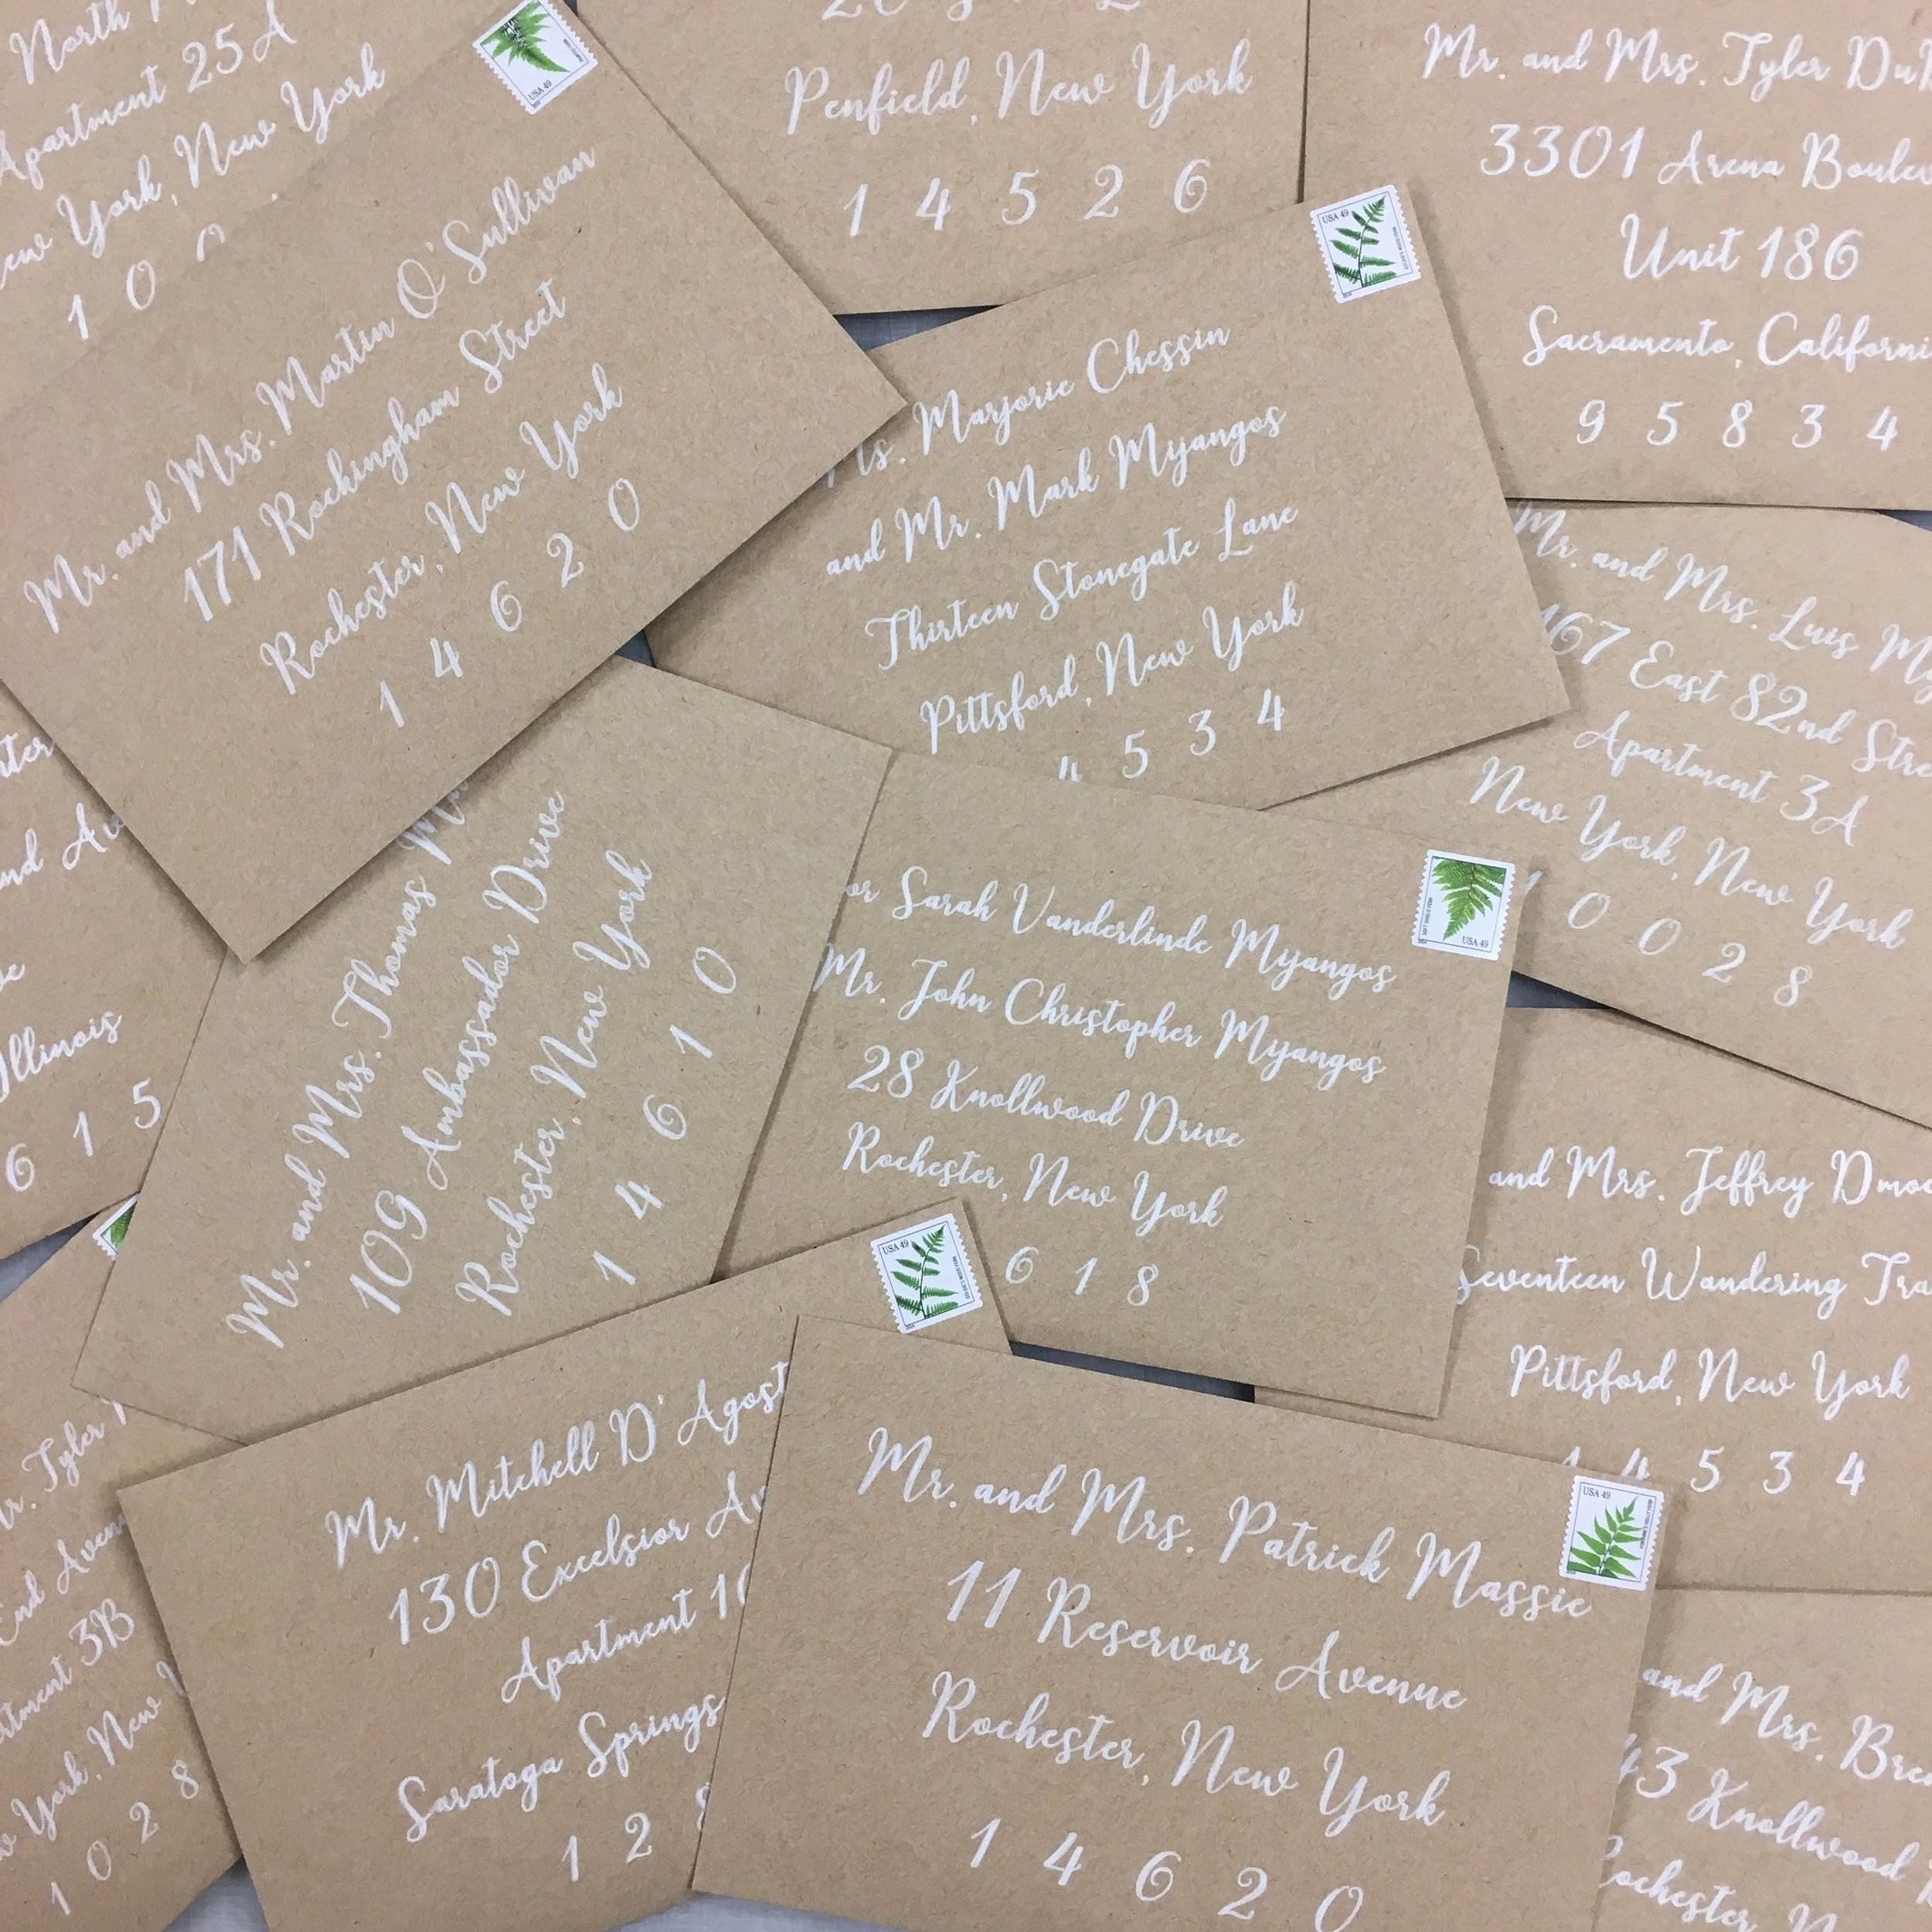 North
Apartment 25A
New York, New York
1 0
Mr. and Mrs. Martin O'Sullivan
171 Rockingham Street
Rochester, New York
1 4 6 2 0
USA 49
Penfield, New York
1 4 5 2 6
Mr. and Mrs. Tyler
3301 Arena
Unit 186
Sacramento,
9 5 8 3 4
Ms. Marjorie Chessin
and Mr. Mark Myangos
Thirteen Stonegate Lane
Pittsford, New York
4 5 3 4
USA 49
Mr. and Mrs. Luis
East 82nd
Apartment 3A
New York, New York
0 0 2 8
Illinois
6 1 5
Mr. and Mrs. Thomas
109 Ambassador Drive
Rochester, New York
1 4 6 1 0
Sarah Vanderlinde Myangos
Mr. John Christopher Myangos
28 Knollwood Drive
Rochester, New York
6 1 8
USA 49
and Mrs. Jeffrey
Seventeen Wandering
Pittsford, New York
1 4 5 3 4
Mr. Tyler
End
3B
New
1 0 2 8
Mr. Mitchell
130 Excelsior
Apartment
Saratoga Springs
1 2
USA 49
Mr. and Mrs. Patrick Massie
11 Reservoir Avenue
Rochester, New York
1 4 6 2 0
USA 49
and Mrs.
43 Knollwood
Rochester,